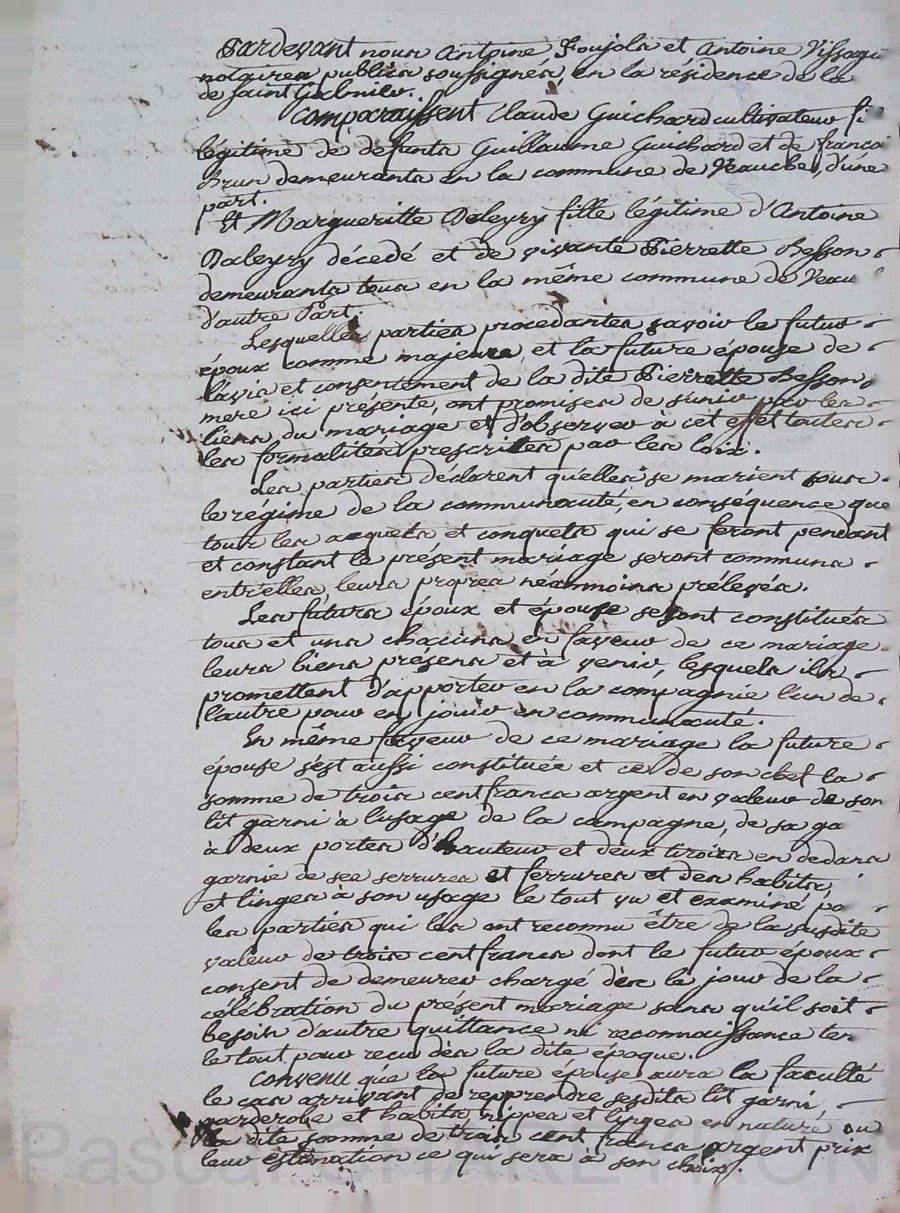 Pardevant nous Antoine Foujols et Antoine Vissagu
notaires publics soussignés, en la résidence de la
de Saint Galmier.
Comparaissent Claude Guichard cultivateur fi
légitime de defunts Guillaume Guichard et de françoi
Brun demeurants en la commune de Veauche, d'une
part.
Et Margueritte Daleyry fille légitime d'Antoine
Daleyry décedé et de vivante Pierrette Besson
demeurants tous en la même commune de Veau
d'autre Part.
Lesquelles parties procedantes savoir le futur
époux comme majeure, et la future épouse de
l'avis et consentement de la dite Pierrette Besson,
mere ici présente, ont promises de s'unir par les
liens du mariage et d'observer à cet effet toutes
les formalités prescrittes par les loix.
Les parties déclarent qu'elles se marient sous
le régime de la communauté, en conséquence que
tous les acquets et conquets qui se feront pendant
et constant le présent mariage seront communs
entr'elles, leurs propres néammoins prélevés.
Les futurs époux et épouse se sont constitués
tous et uns chacuns en faveur de ce mariage
leurs biens présens et à venir, lesquels ils
promettent d'apporter en la compagnie l'un de
l'autre pour en jouir en communauté.
En même faveur de ce mariage la future
épouse s'est aussi constituée et ce de son chef la
somme de trois cent francs argent en valeur de son
lit garni à l'usage de la campagne, de sa ga
à deux portes d'hauteur et deux tiroirs en dedans
garnie de ses serrures et ferrures et des habits,
et linges à son usage le tout vu et examiné pa
les parties qui les ont reconnu être de la susdite
valeur de trois cent francs dont le futur époux
consent de demeurer chargé dès le jour de la
célébration du présent mariage sans qu'il soit
besoin d'autre quittance ni reconnaissance ten
le tout pour recu dès la dite époque.
Convenu que la future épouse aura la faculté
le cas arrivant de repprendre sesdits lit garni,
garderobe et habits, nippes et linges en nature, ou
la dite somme de trois cent francs argent prix
leur estimation ce qui sera à son choix.
Pascal CHARETIRON